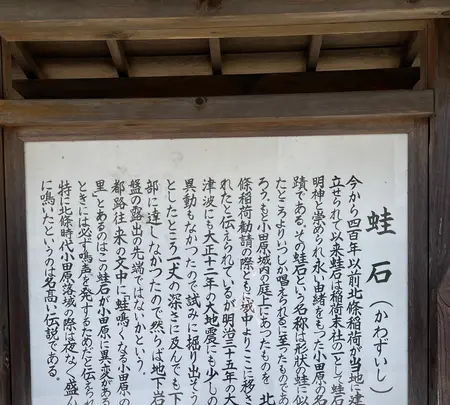 蛙石（かわずいし）
今から四百年以前北條稲荷が当地に建
立せられて以来蛙石は稲荷末社の一として蛙石
明神と崇められ永い由緒をもった小田原の名
蹟である。その蛙石という名称は形状の蛙に似
たところよりいつしか唱えられるに至ったものであ
ろう。もと小田原城内の庭上にあったものを北
條稲荷勧請の際ともに城中よりここに移さ
れたと伝えられているが明治三十五年の大
津波にも大正十二年の大地震にも少しの
異動もなかったので試みに掘り出そう
としたところ一丈の深さに及んでも下
部に達しなかったので然らば地下岩
盤の露出の先端ではないかという。
都路往来の文中に「蛙鳴くなる小田原の
里」とあるのはこの蛙石が小田原に異変がある
ときには必ず鳴声を発するためだと伝えられ
特に北條時代小田原城落城の際に夜なく盛ん
に鳴いたというのは名高い伝説である。